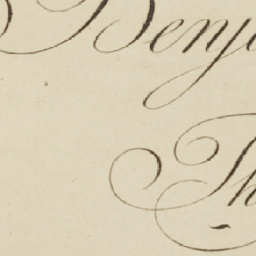 Benj
Th